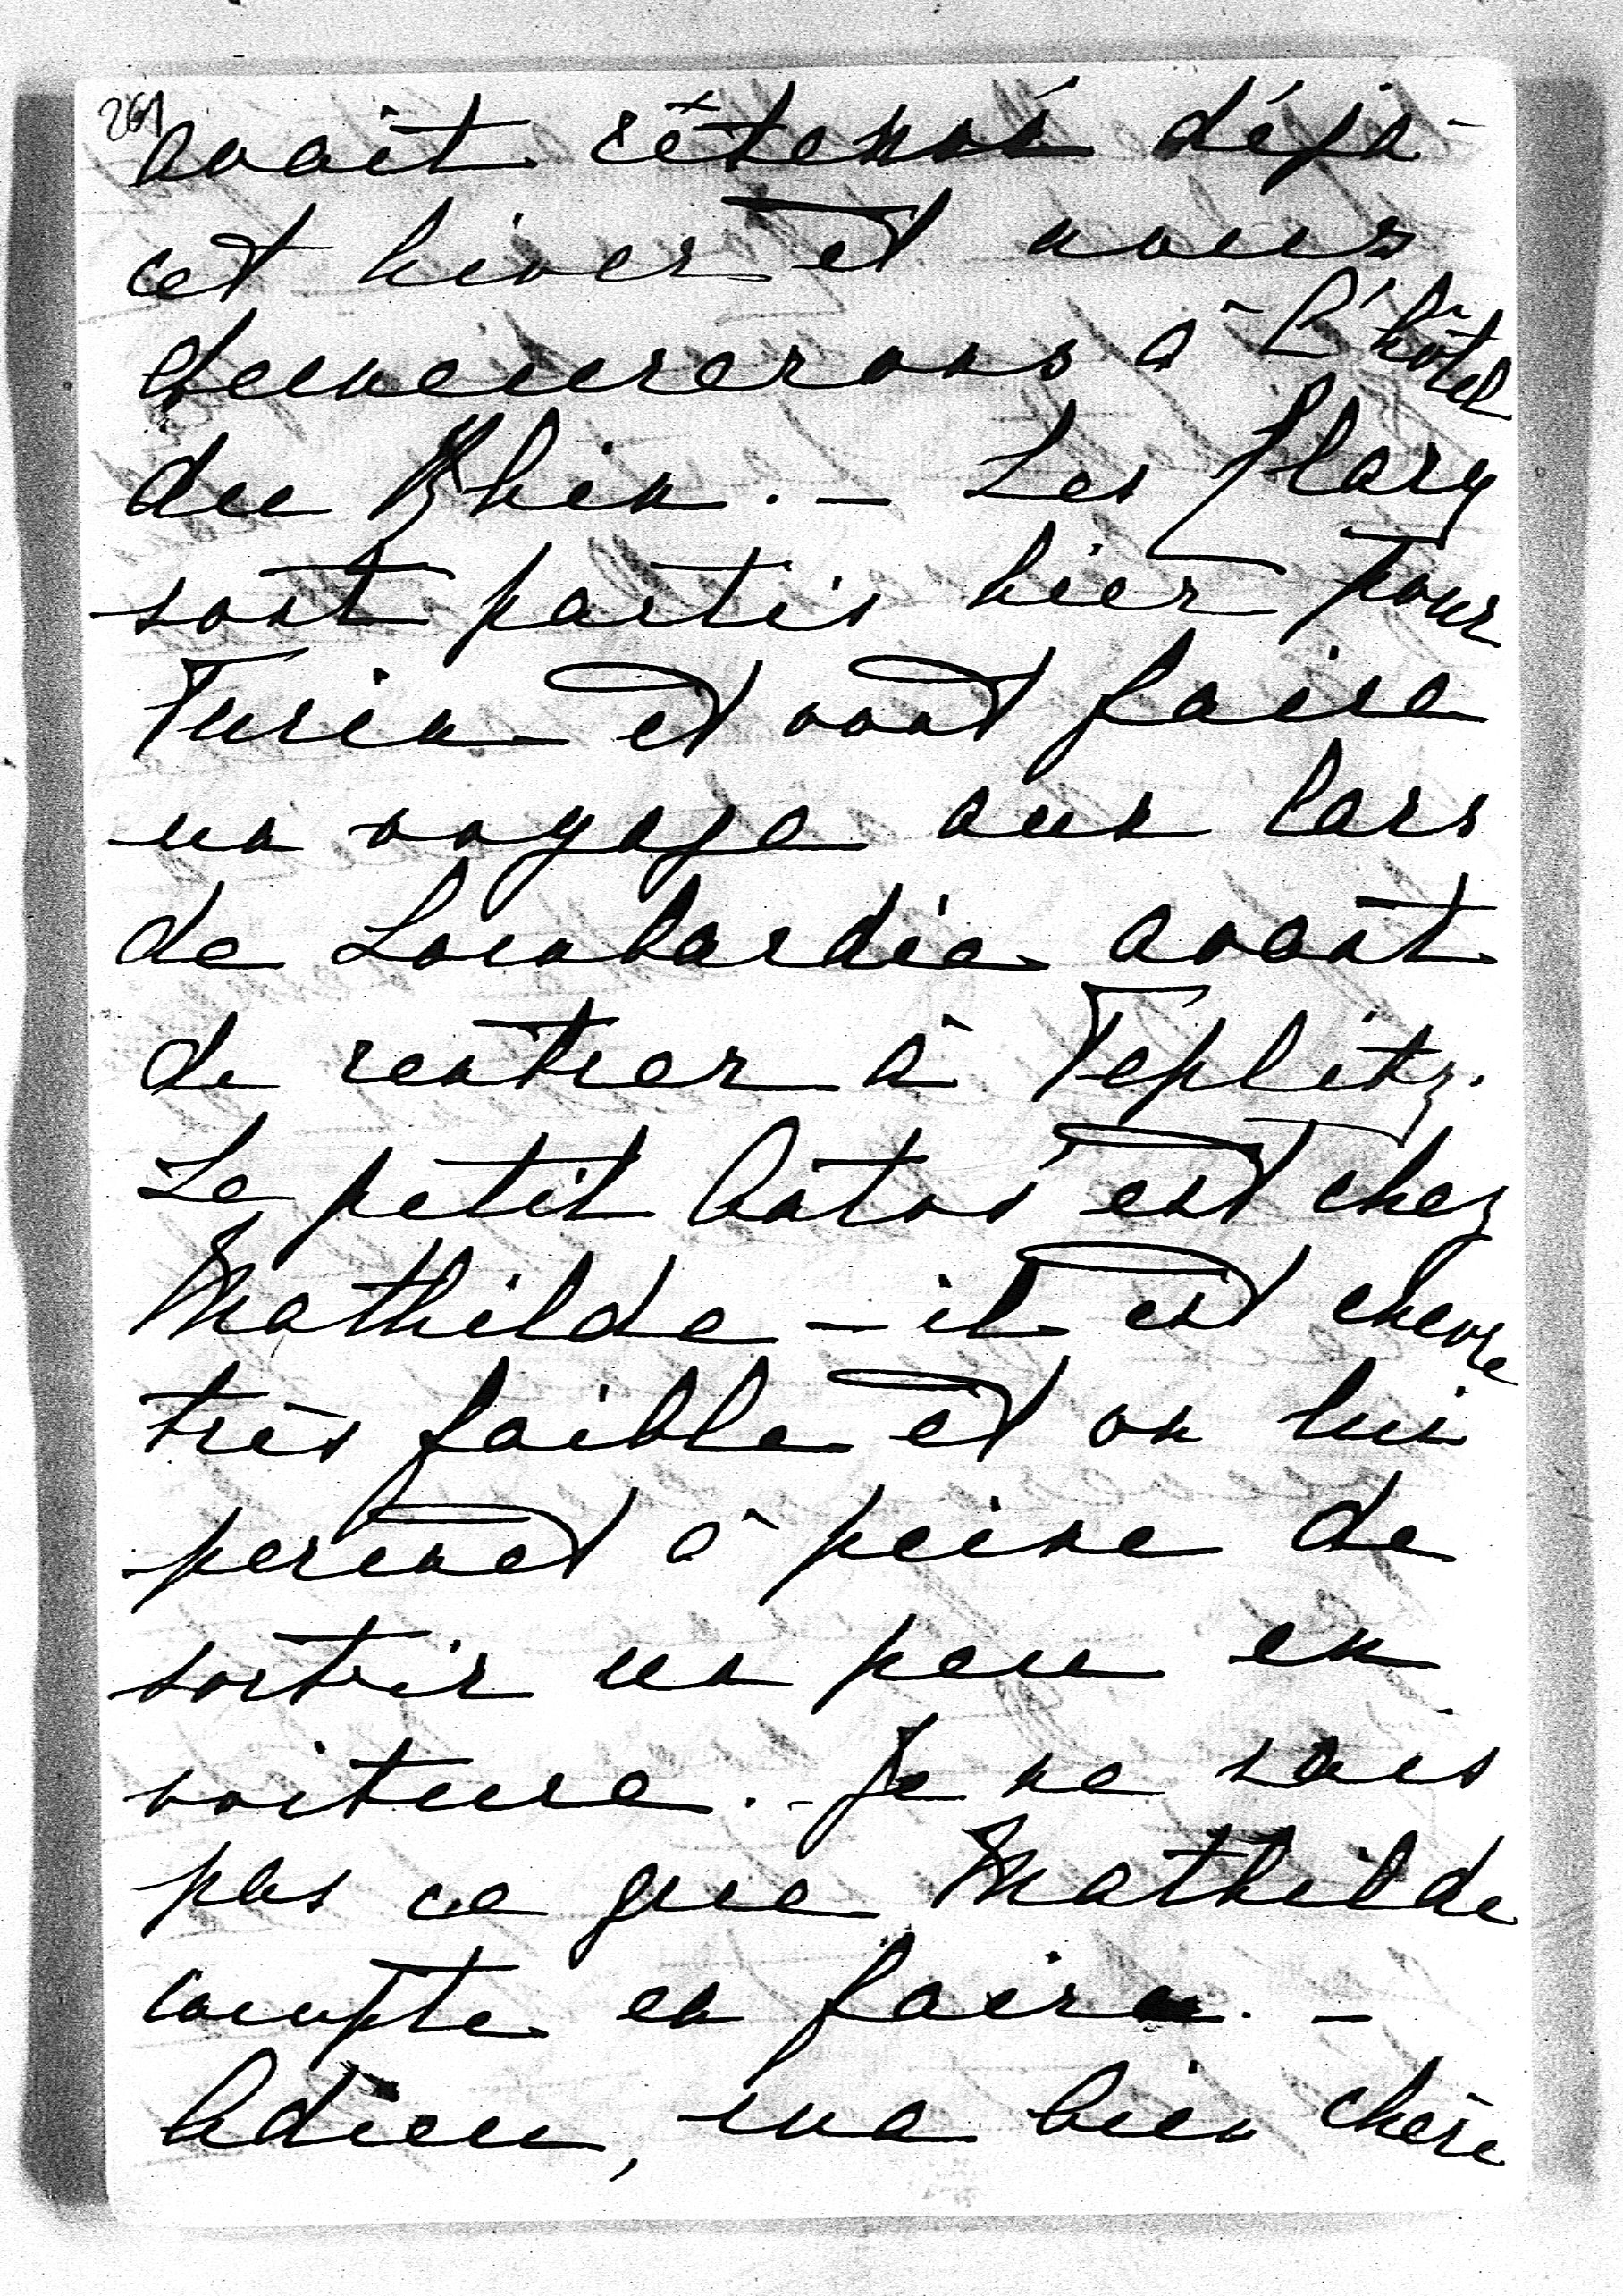 261
avait retenu déjà
cet hiver et nous
demeurerons à l'hôtel
du Rhin. - Les Clary
sont partis hier pour
Turin et vont faire
un voyage aux lacs
de Lombardie avant
de rentrer à Teplitz.
Le petit Antos est chez
Mathilde - il est encore
très faible et on lui
permet à peine de
sortir un peu en
voiture. - Je ne sais
pas ce que Mathilde
compte en faire. -
Adieu, ma bien chère